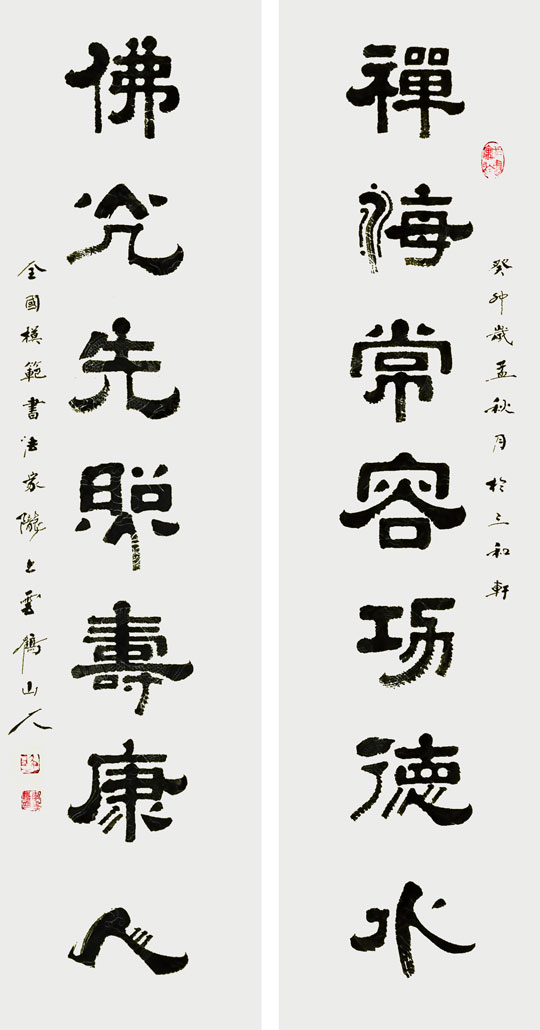 癸卯歲孟秋月於三和軒
禪海常容功德水
佛光先照壽康人
全國模範書法家隴上雲鶴山人